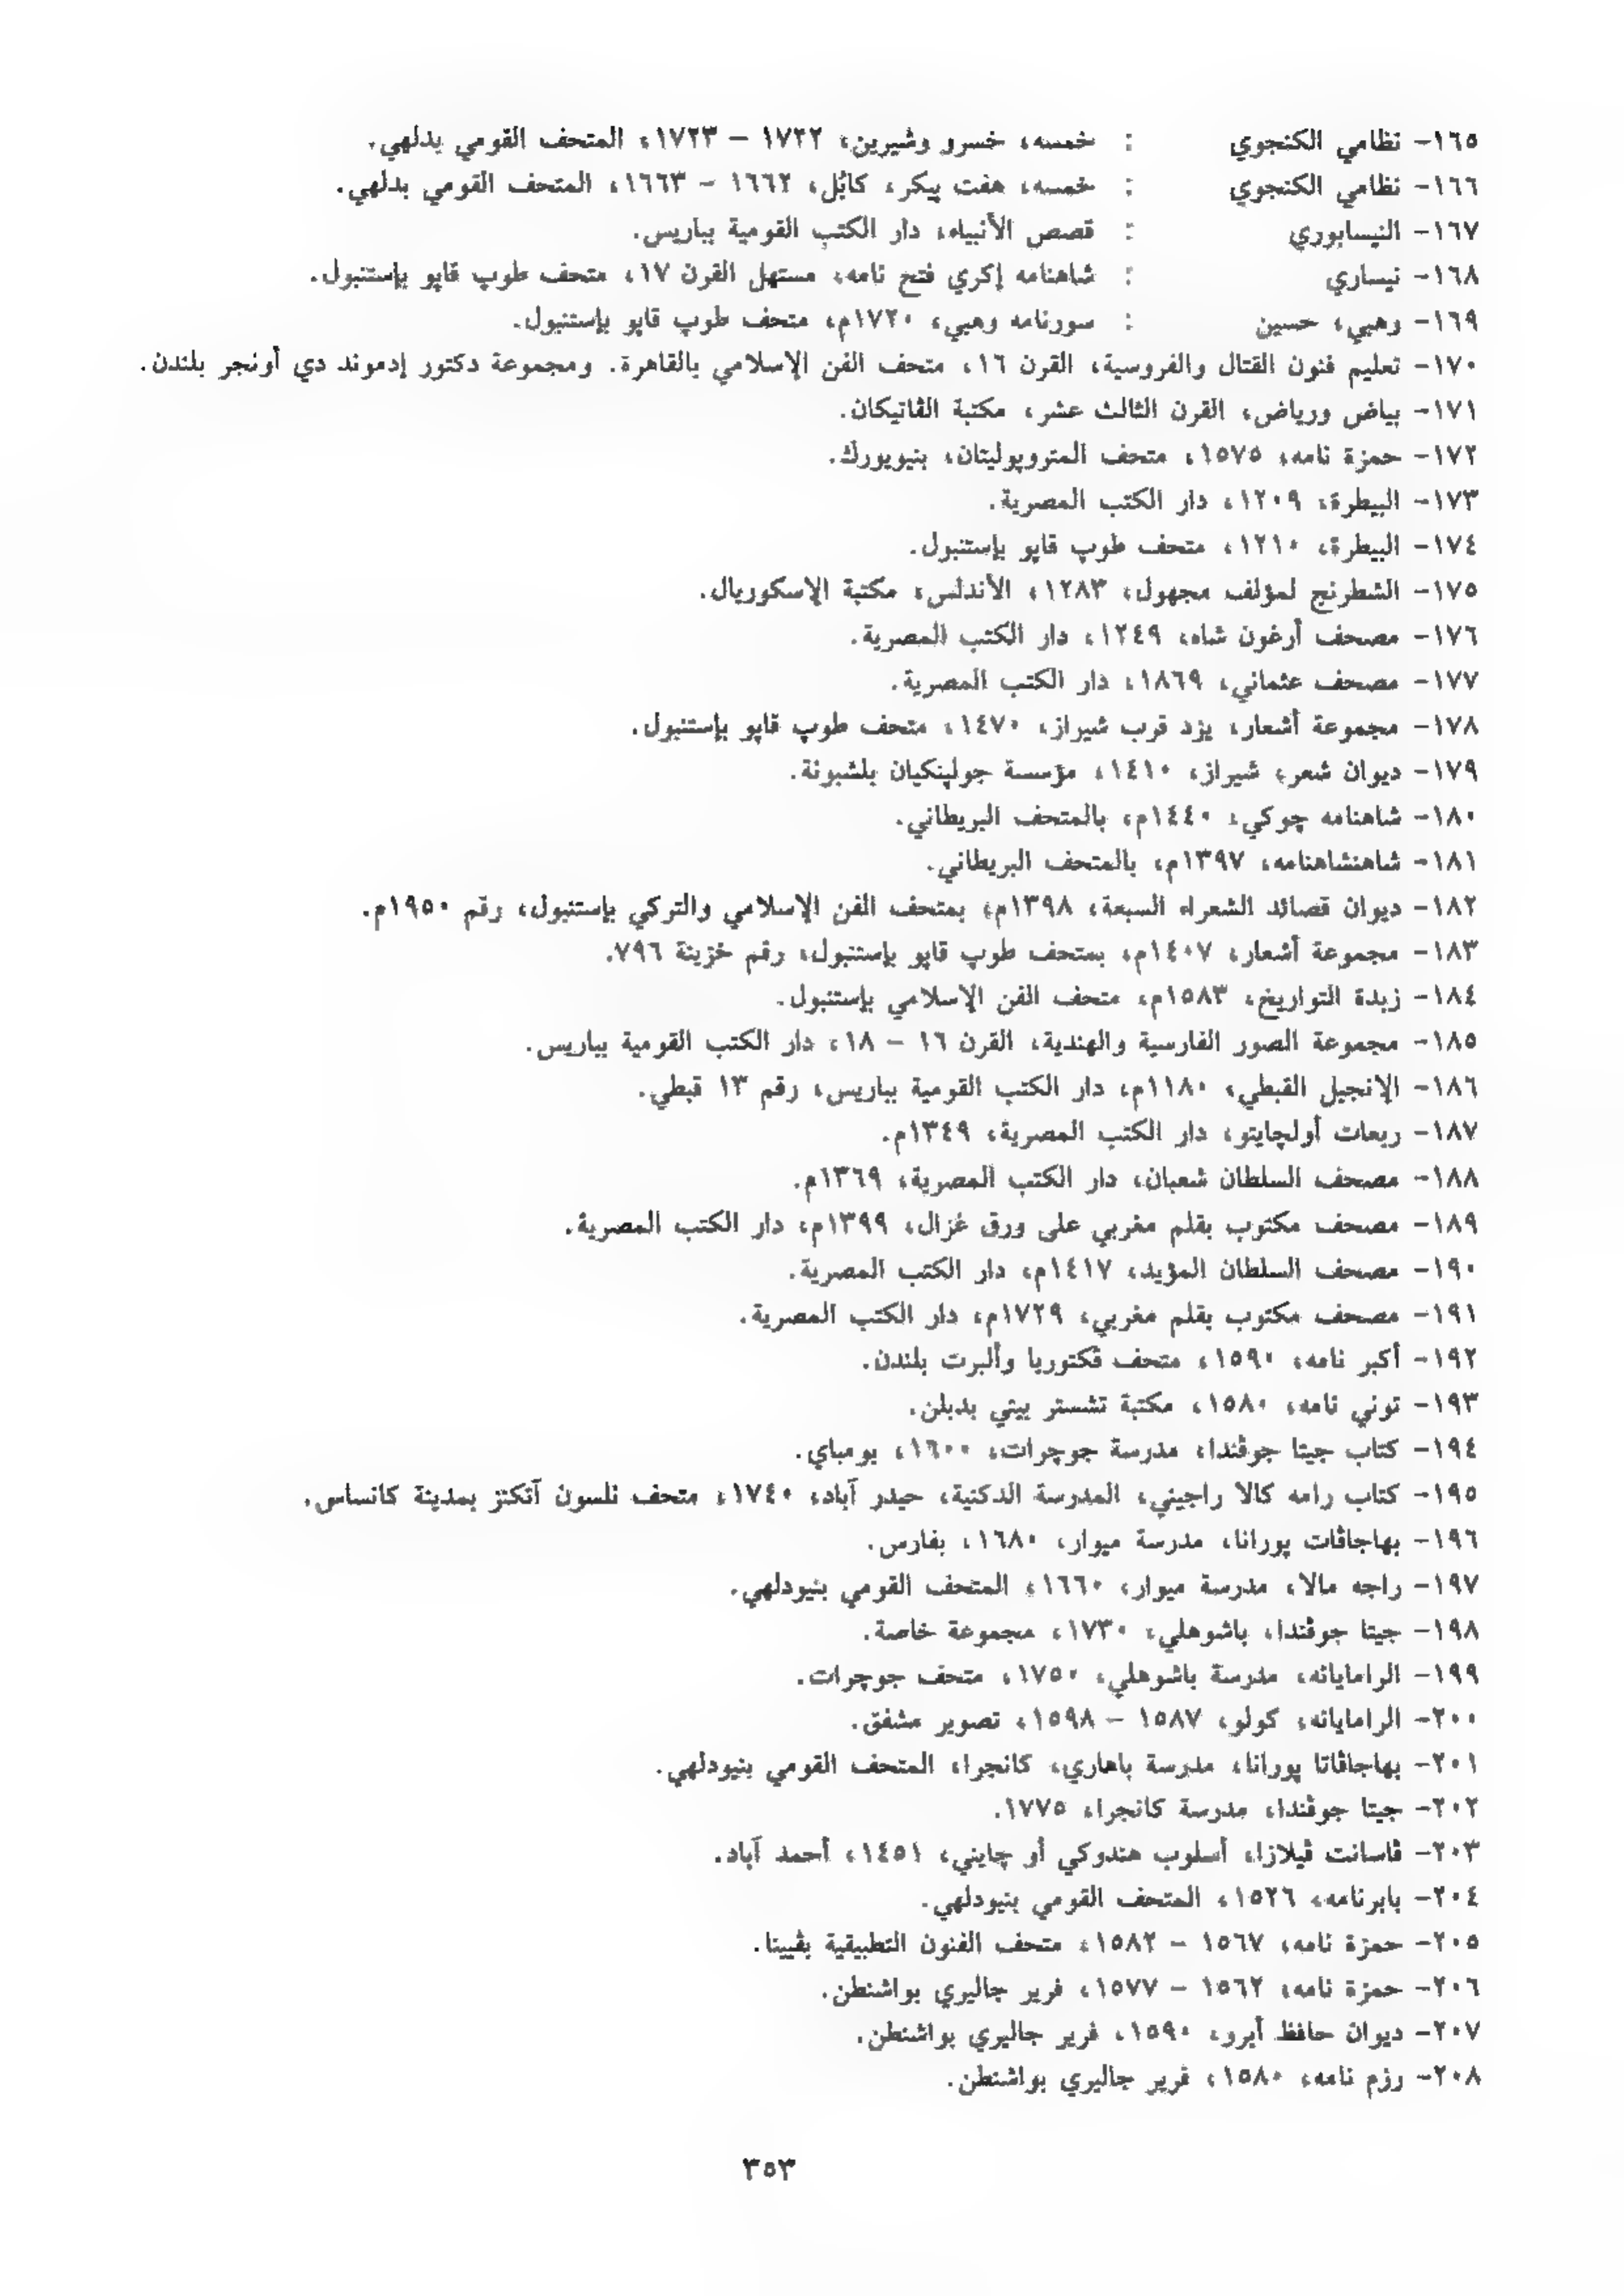 ١٦٥- نظامي الكنجوي : خمسه، خسرو وشيرين، ١٧٢٢ – ١٧٢٣، المتحف القومي بدلهي.
١٦٦- نظامي الكنجوي : خمسه، هفت پيكر، كابُل، ١٦٦٢ – ١٦٦٣، المتحف القومي بدلهي.
١٦٧- النيسابوري : قصص الأنبياء، دار الكتب القومية بباريس.
١٦٨- نيساري : شاهنامه إكري فتح نامه، مستهل القرن ١٧، متحف طوپ قاپو بإستنبول.
١٦٩- وهبي، حسين : سورنامه وهبي، ١٧٢٠م، متحف طوپ قاپو بإستنبول.
١٧٠- تعليم فنون القتال والفروسية، القرن ١٦، متحف الفن الإسلامي بالقاهرة. ومجموعة دكتور إدموند دي أونجر بلندن.
١٧١- بياض ورياض، القرن الثالث عشر، مكتبة الڤاتيكان.
١٧٢- حمزة نامه، ١٥٧٥، متحف المتروپوليتان، بنيويورك.
١٧٣- البيطرة، ١٢٠٩، دار الكتب المصرية.
١٧٤- البيطرة، ١٢١٠، متحف طوپ قاپو بإستنبول.
١٧٥- الشطرنج لمؤلف مجهول، ١٢٨٣، الأندلس، مكتبة الإسكوريال.
١٧٦- مصحف أرغون شاه، ١٢٤٩، دار الكتب المصرية.
١٧٧- مصحف عثماني، ١٨٦٩، دار الكتب المصرية.
١٧٨- مجموعة أشعار، يزد قرب شيراز، ١٤٧٠، متحف طوپ قاپو بإستنبول.
١٧٩- ديوان شعر، شيراز، ١٤١٠، مؤسسة جولبنكيان بلشبونة.
١٨٠- شاهنامه چوكي، ١٤٤٠م، بالمتحف البريطاني.
١٨١- شاهنشاهنامه، ١٣٩٧م، بالمتحف البريطاني.
١٨٢- ديوان قصائد الشعراء السبعة، ١٣٩٨م، بمتحف الفن الإسلامي والتركي بإستنبول، رقم ١٩٥٠م.
١٨٣- مجموعة أشعار، ١٤٠٧م، بمتحف طوپ قاپو بإستنبول، رقم خزينة ٧٩٦.
١٨٤- زبدة التواريخ، ١٥٨٣م، متحف الفن الإسلامي بإستنبول.
١٨٥- مجموعة الصور الفارسية والهندية، القرن ١٦ – ١٨، دار الكتب القومية بباريس.
١٨٦- الإنجيل القبطي، ١١٨٠م، دار الكتب القومية بباريس، رقم ١٣ قبطي.
١٨٧- ربعات أولچايتو، دار الكتب المصرية، ١٣٤٩م.
١٨٨- مصحف السلطان شعبان، دار الكتب المصرية، ١٣٦٩م.
١٨٩- مصحف مكتوب بقلم مغربي على ورق غزال، ١٣٩٩م، دار الكتب المصرية.
١٩٠- مصحف السلطان المؤيد، ١٤١٧م، دار الكتب المصرية.
١٩١- مصحف مكتوب بقلم مغربي، ١٧٢٩م، دار الكتب المصرية.
١٩٢- أكبر نامه، ١٥٩٠، متحف ڤكتوريا وألبرت بلندن.
١٩٣- توتي نامه، ١٥٨٠، مكتبة تشستر بيتي بدبلن.
١٩٤- كتاب جيتا جوڤندا، مدرسة جوچرات، ١٦٠٠، بومباي.
١٩٥- كتاب رامه كالا راجيني، المدرسة الدكنية، حيدر آباد، ١٧٤٠، متحف نلسون آتكنز بمدينة كانساس.
١٩٦- بهاجاڤات پورانا، مدرسة ميوار، ١٦٨٠، بفارس.
١٩٧- راجه مالا، مدرسة ميوار، ١٦٦٠، المتحف القومي بنيودلهي.
١٩٨- جيتا جوڤندا، باشوهلي، ١٧٣٠، مجموعة خاصة.
١٩٩- الرامايانه، مدرسة باشوهلي، ١٧٥٠، متحف جوچرات.
٢٠٠- الرامايانه، كولو، ١٥٨٧ – ١٥٩٨، تصوير مشفق.
٢٠١- بهاجاڤاتا پورانا، مدرسة باهاري، كانجرا، المتحف القومي بنيودلهي.
٢٠٢- جيتا جوڤندا، مدرسة كانجرا، ١٧٧٥.
٢٠٣- ڤاسانت ڤيلازا، أسلوب هندوكي أو چايني، ١٤٥١، أحمد آباد.
٢٠٤- بابرنامه، ١٥٢٦، المتحف القومي بنيودلهي.
٢٠٥- حمزة نامه، ١٥٦٧ – ١٥٨٢، متحف الفنون التطبيقية بڤيينا.
٢٠٦- حمزة نامه، ١٥٦٢ – ١٥٧٧، فرير جاليري بواشنطن.
٢٠٧- ديوان حافظ أبرو، ١٥٩٠، فرير جاليري بواشنطن.
٢٠٨- رزم نامه، ١٥٨٠، فرير جاليري بواشنطن.
٣٥٣